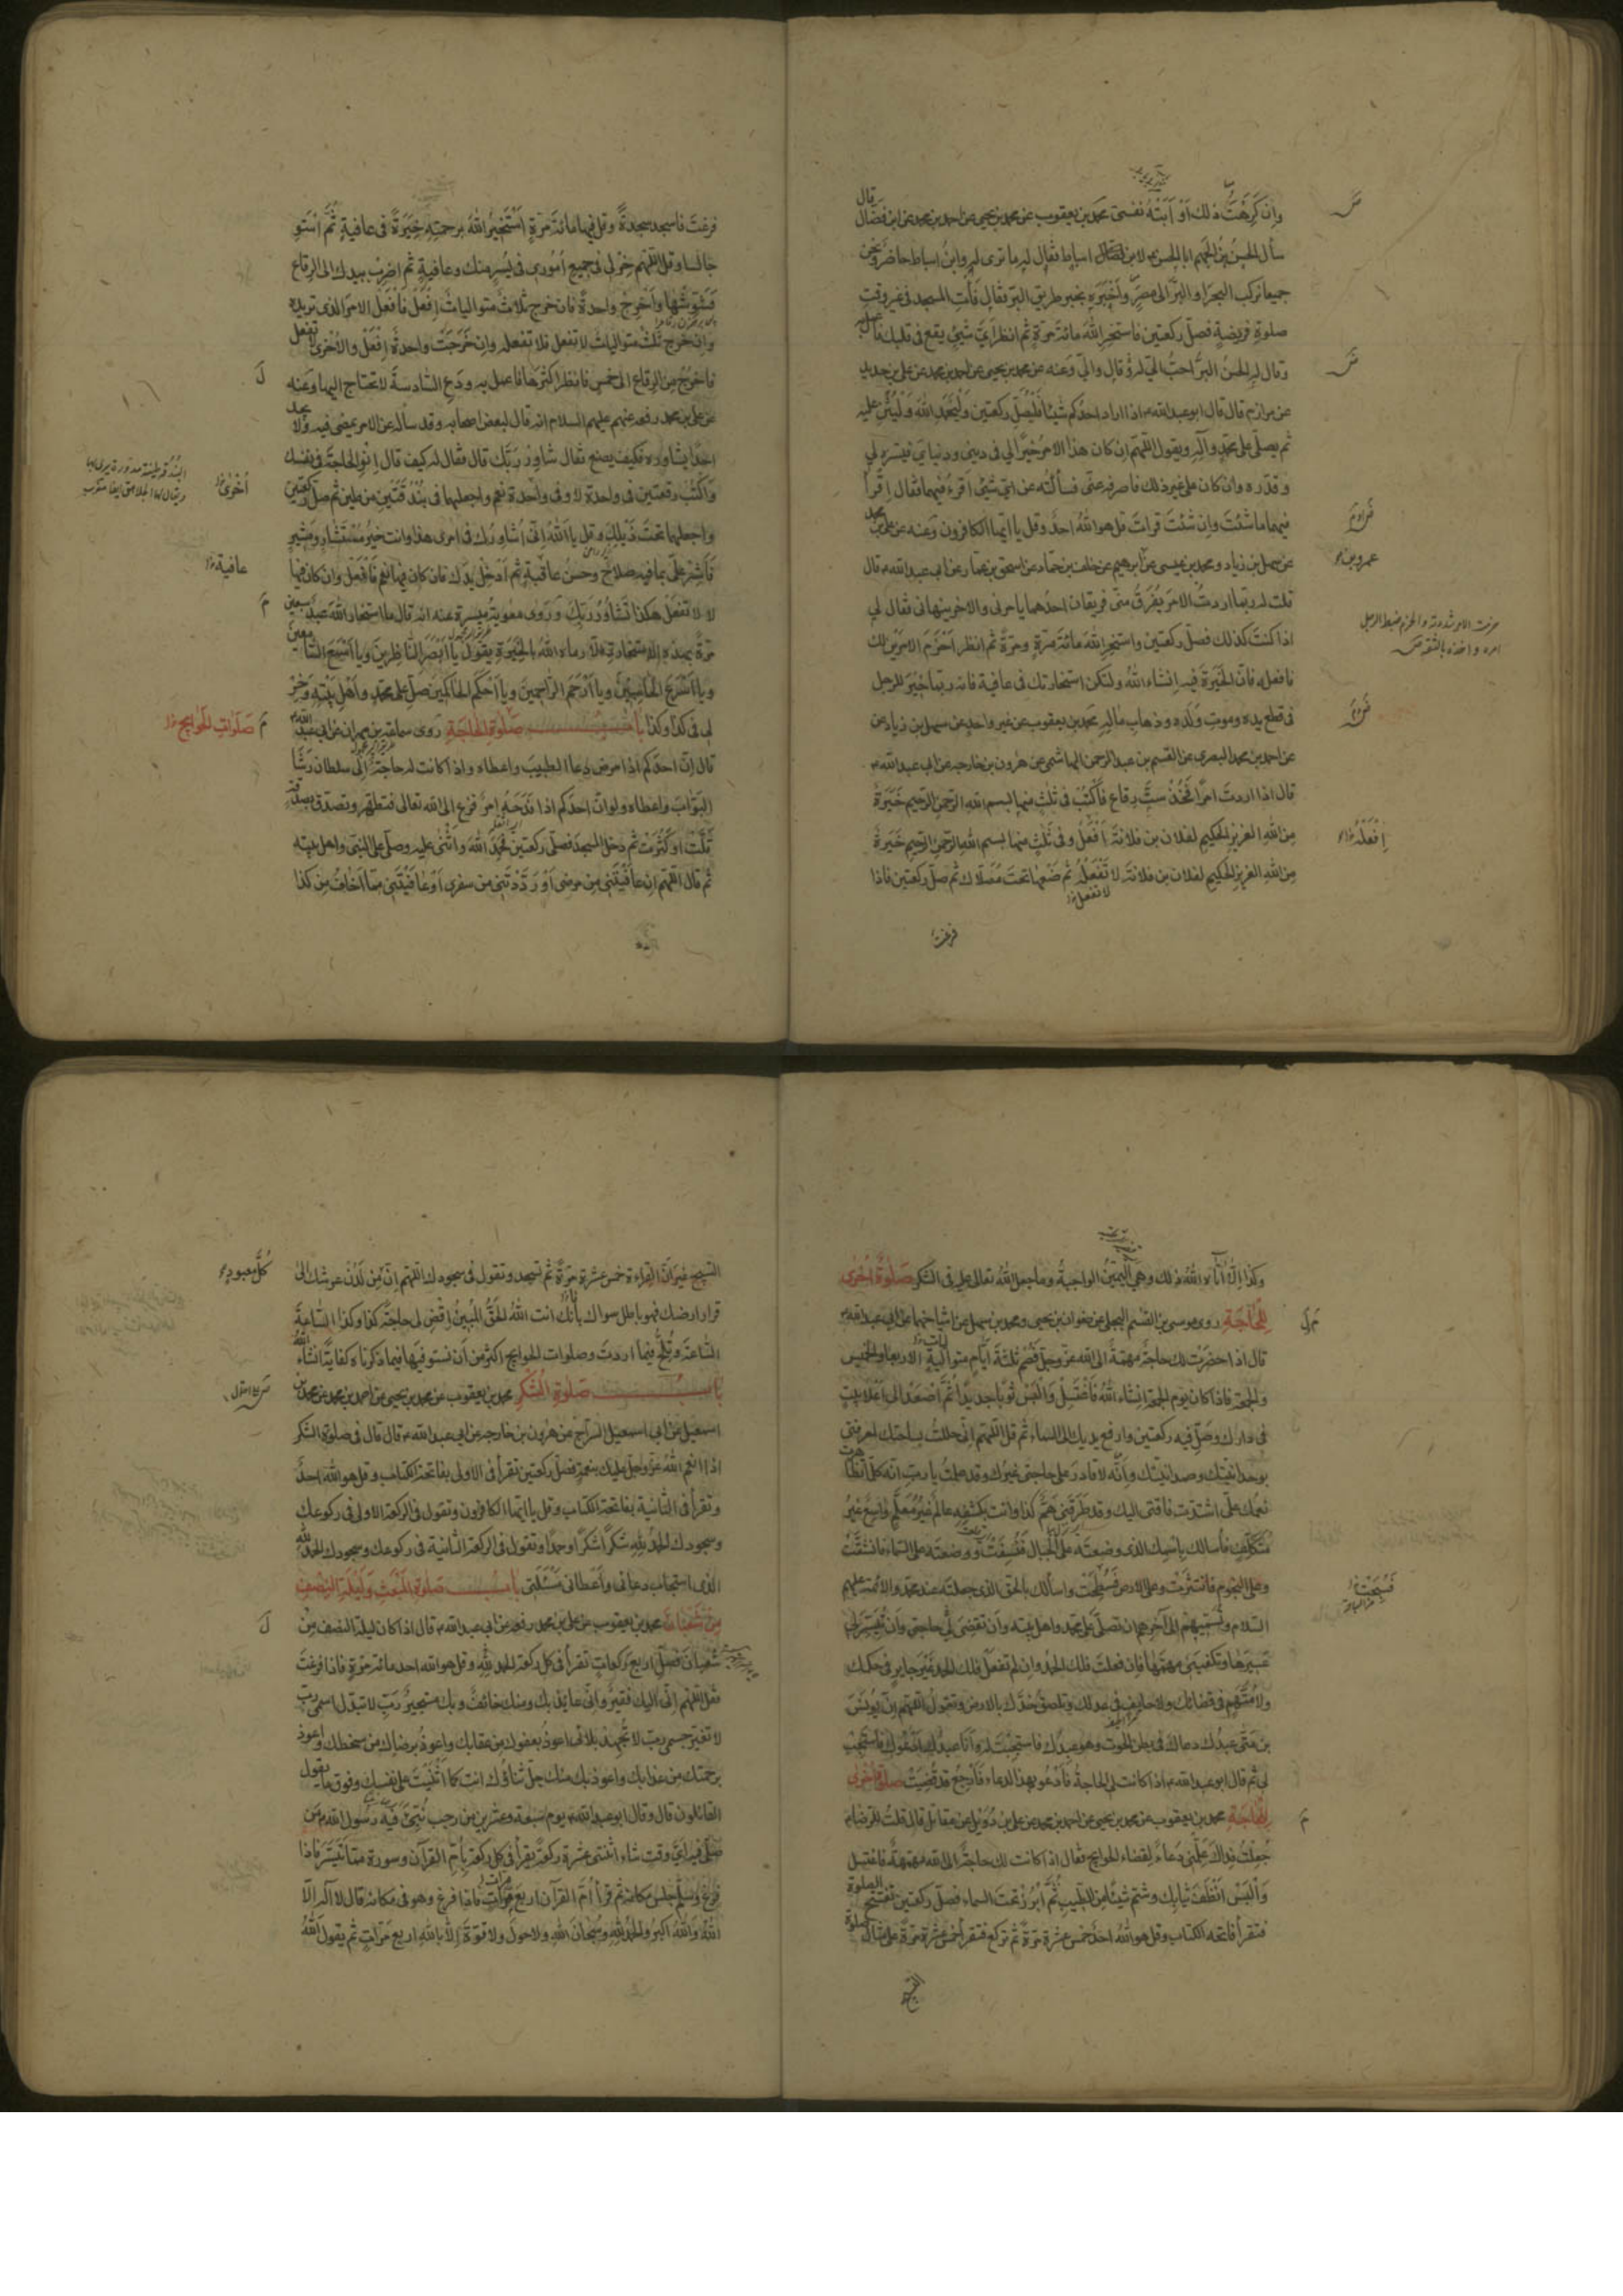 وان كرهت ذلك او ابته نفسى محمد بن يعقوب عن محمد بن يحيى عن احمد بن محمد عن ابن فضال قال
سأل الحسن بن الجهم ابا الحسن ع لابن اسباط فقال له ما ترى له وابن اسباط حاضر ونحن
جميعا نركب البحر او البر الى مصر واخبره بخبر طريق البر فقال فأت المسجد فى غير وقت
صلوة فريضة فصل ركعتين فاستخر الله مائة مرة ثم انظر اى شىء يقع فى قلبك فاعمل به
وقال له الحسن البر احب الى له قال والى وعنه عن محمد بن يحيى عن احمد بن محمد عن على بن حديد
عن مرازم قال قال ابو عبد الله ع اذا اراد احدكم شيئا فليصل ركعتين وليحمد الله وليثن عليه
ثم يصلى على محمد وآله ويقول اللهم ان كان هذا الامر خيرا لى فى دينى ودنياى فيسره لى
وقدره وان كان على غير ذلك فاصرفه عنى فسألته عن اى شىء اقرء فيهما فقال اقرأ
فيهما ما شئت وان شئت قرات قل هو الله احد وقل يا ايها الكافرون وعنه عن على بن محمد
عن سهل بن زياد ومحمد بن عيسى عن ابرهيم عن خلف بن حماد عن اسحق بن عمار عن ابى عبد الله ع قال
قلت له ربما اردت الامر يفرق منى فريقان احدهما يامرنى والاخر ينهانى فقال لى
اذا كنت كذلك فصل ركعتين واستخر الله مائة مرة ومرة ثم انظر احزم الامرين لك
فافعله فان الخيرة فيه انشاء الله ولتكن استخارتك فى عافية فانه ربما خير للرجل
فى قطع يده وموت ولده وذهاب ماله محمد بن يعقوب عن غير واحد عن سهل بن زياد عن
عن احمد بن محمد البصرى عن القسم بن عبد الرحمن الهاشمى عن هرون بن خارجه عن ابى عبد الله ع
قال اذا اردت امرا فخذ ست رقاع فاكتب فى ثلث منها بسم الله الرحمن الرحيم خيرة
من الله العزيز الحكيم لفلان بن فلانة افعل وفى ثلث منها بسم الله الرحمن الرحيم خيرة
من الله العزيز الحكيم لفلان بن فلانة لا تفعل ثم ضعها تحت مصلاك ثم صل ركعتين فاذا
لا تفعل
فرغت
عمرو بن
افعله
فرغت فاسجد سجدة وقل فيها مائة مرة استخير الله برحمته خيرة فى عافية ثم استو
جالسا وقل اللهم خر لى فى جميع امورى فى يسر منك وعافية ثم اضرب بيدك الى الرقاع
فشوشها واخرج واحدة فان خرج ثلاث متواليات افعل فافعل الامر الذى تريده
وان خرج ثلث متواليات لا تفعل فلا تفعله وان خرجت واحدة افعل والاخرى لا تفعل
فاخرج من الرقاع الى خمس فانظر اكثرها فاعمل به ودع السادسة لا تحتاج اليها وعنه
عن على بن محمد رفعه عنهم عليهم السلام انه قال لبعض اصحابه وقد سأله عن الامر يمضى فيه ولا يجد
احدا يشاوره فكيف يصنع فقال شاور ربك قال فقال له كيف قال انو الحاجة فى نفسك
واكتب رقعتين فى واحدة لا وفى واحدة نعم واجعلهما فى بندقتين من طين ثم صل ركعتين
واجعلهما تحت ذيلك وقل يا الله انى اشاورك فى امرى هذا وانت خير مستشار ومشير
فاشر على بما فيه صلاح وحسن عاقبة ثم ادخل يدك فان كان فيها نعم فافعل وان كان فيها
لا لا تفعل هكذا تشاور ربك وروى معوية بن ميسرة عنه انه قال ما استخار الله عبد سبعين
مرة بهذه الاستخارة الا رماه الله بالخيرة يقول يا ابصر الناظرين ويا اسمع السامعين
ويا اسرع الحاسبين ويا ارحم الراحمين ويا احكم الحاكمين صل على محمد واهل بيته وخر
لى فى كذا وكذا باب صلوة الحاجة روى سماعة بن مهران عن ابى عبد الله ع
قال ان احدكم اذا مرض دعا الطبيب واعطاه واذا كانت له حاجة الى سلطان رشا
البواب واعطاه ولو ان احدكم اذا فدحه امر فزع الى الله تعالى فتطهر وتصدق بصدقة
قلت او كثرت ثم دخل المسجد فصلى ركعتين فحمد الله واثنى عليه وصلى على النبى واهل بيته
ثم قال اللهم ان عافيتنى من مرضى او رددتنى من سفرى او عافيتنى مما اخاف من كذا
اخرى
عافية
صلوات الحوايج
وكذا الا آتاه الله ذلك وهى اليمين الواجبة وما جعل الله تعالى عليه فى الشكر صلوة اخرى
للحاجة روى موسى بن القسم البجلى عن صفوان بن يحيى ومحمد بن سهل عن اشياخهما عن ابى عبد الله ع
قال اذا حضرت لك حاجة مهمة الى الله عز وجل فصم ثلثة ايام متوالية الاربعا والخميس
والجمعة فاذا كان يوم الجمعة انشاء الله فاغتسل والبس ثوبا جديدا ثم اصعد الى اعلا بيت
فى دارك وصل فيه ركعتين وارفع يديك الى السماء ثم قل اللهم انى حللت بساحتك لمعرفتى
بوحدانيتك وصمدانيتك وانه لا قادر على حاجتى غيرك وقد علمت يا رب انه كلما تظاهرت
نعمك على اشتدت فاقتى اليك وقد طرقنى هم كذا وانت بكشفه عالم غير معلم واسع غير
متكلف فأسالك باسمك الذى وضعته على الجبال فنسفت ووضعته على السماء فانشقت
وعلى النجوم فانتثرت وعلى الارض فسطحت واسألك بالحق الذى جعلته عند محمد والائمة عليهم
السلام وتسميهم الى آخرهم ان تصلى على محمد واهل بيته وان تقضى لى حاجتى وان تيسر لى
عسيرها وتكفينى مهمها فان فعلت فلك الحمد وان لم تفعل فلك الحمد غير جاير فى حكمك
ولا متهم فى قضائك ولا حايف فى عدلك وتلصق خدك بالارض وتقول اللهم ان يونس
بن متى عبدك دعاك فى بطن الحوت وهو عبدك فاستجبت له وانا عبدك ادعوك فاستجب
لى ثم قال ابو عبد الله ع اذا كانت لى الحاجة فادعو بهذا الدعاء فارجع قد قضيت صلوة اخرى
للحاجة محمد بن يعقوب عن محمد بن يحيى عن احمد بن محمد عن على بن دويل عن مقاتل قال قلت للرضا ع
جعلت فداك علمنى دعاء لقضاء الحوايج فقال اذا كانت لك حاجة الى الله مهمة فاغتسل
والبس انظف ثيابك وشم شيئا من الطيب ثم ابرز تحت السماء فصل ركعتين تفتتح الصلوة
فتقرأ فاتحة الكتاب وقل هو الله احد خمس عشرة مرة ثم تركع فتقرأ خمس عشرة مرة على مثال صلوة
التسبيح
التسبيح غير ان القراءة خمس عشرة مرة ثم تسجد وتقول فى سجودك اللهم ان من لدن عرشك الى
قرار ارضك فهو باطل سواك بأنك انت الله الحق المبين اقض لى حاجة كذا وكذا الساعة
الساعة وتلح فيما اردت وصلوات الحوايج اكثر من ان نستوفيها فيما ذكرناه كفاية انشاء الله
باب صلوة الشكر محمد بن يعقوب عن محمد بن يحيى عن احمد بن محمد عن محمد بن
اسمعيل عن ابى اسمعيل السراج عن هرون بن خارجه عن ابى عبد الله ع قال قال فى صلوة الشكر
اذا انعم الله عز وجل عليك بنعمة فصل ركعتين تقرأ فى الاولى بفاتحة الكتاب وقل هو الله احد
وتقرأ فى الثانية بفاتحة الكتاب وقل يا ايها الكافرون وتقول فى الركعة الاولى فى ركوعك
وسجودك الحمد لله شكرا شكرا وحمدا وتقول فى الركعة الثانية فى ركوعك وسجودك الحمد لله
الذى استجاب دعائى واعطانى مسئلتى باب صلوة المبعث وليلة النصف
من شعبان محمد بن يعقوب عن على بن محمد رفعه عن ابى عبد الله ع قال اذا كان ليلة النصف من
شعبان فصل اربع ركعات تقرأ فى كل ركعة الحمد لله وقل هو الله احد مائة مرة فاذا فرغت
فقل اللهم انى اليك فقير وانى عائذ بك ومنك خائف وبك مستجير رب لا تبدل اسمى رب
لا تغير جسمى رب لا تجهد بلائى اعوذ بعفوك من عقابك واعوذ برضاك من سخطك واعوذ
برحمتك من عذابك واعوذ بك منك جل ثناؤك انت كما اثنيت على نفسك وفوق ما يقول
القائلون قال وقال ابو عبد الله ع يوم سبعة وعشرين من رجب نبئ فيه رسول الله ص من
صلى فيه اى وقت شاء اثنتى عشرة ركعة يقرأ فى كل ركعة بام القرآن وسورة مما تيسر فاذا
فرغ وسلم جلس مكانه ثم قرأ ام القرآن اربع مرات فاذا فرغ وهو فى مكانه قال لا اله الا
الله والله اكبر والحمد لله وسبحان الله ولا حول ولا قوة الا بالله اربع مرات ثم يقول الله
كل معبود